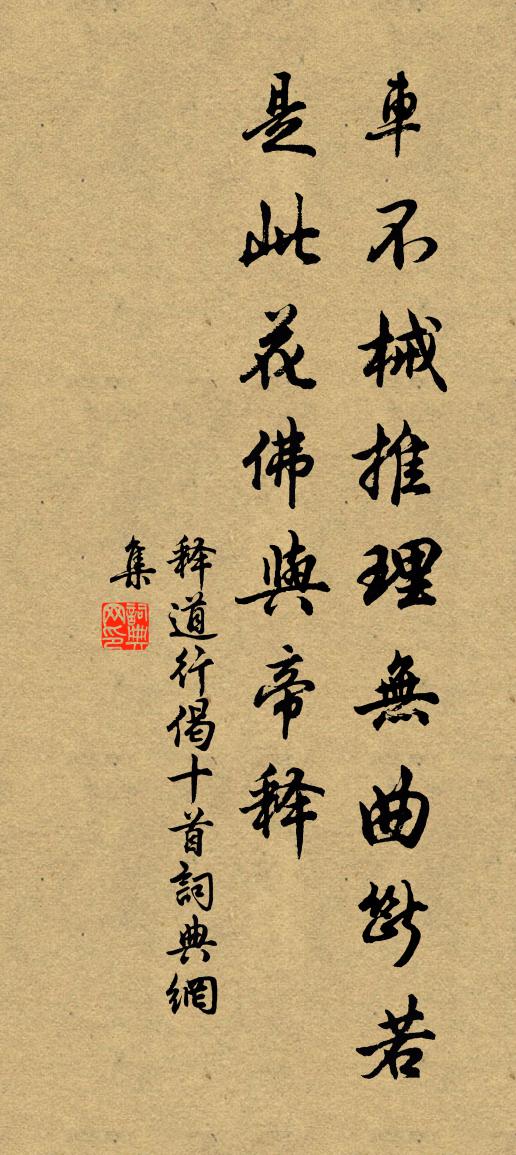 車不械推理無曲斷若
是此花佛與帝释
释道行偈十首詞典網
集
詞典
网印